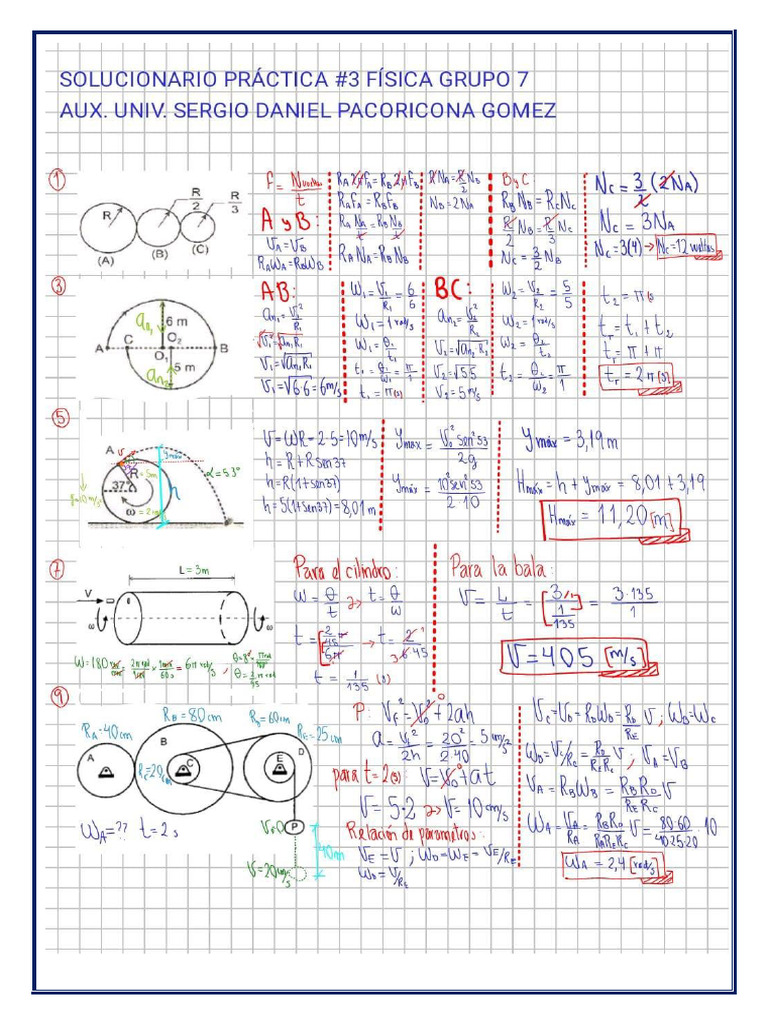 SOLUCIONARIO PRÁCTICA #3 FÍSICA GRUPO 7
AUX. UNIV. SERGIO DANIEL PACORICONA GOMEZ
1
R
R/2
R/3
(A)
(B)
(C)
f = Nvueltas/t
A y B:
VA = VB
RAωA = RBωB
RA 2π fA = RB 2π fB
RA fA = RB fB
RA NA/t = RB NB/t
RA NA = RB NB
R NA = R/2 NB
NB = 2NA
B y C:
RB NB = RC NC
R/2 NB = R/3 NC
NC = 3/2 NB
NC = 3/2 (2NA)
NC = 3NA
NC = 3(4) → NC = 12 vueltas
3
an1
6 m
A
C
O2
O1
B
5 m
an2
AB:
an1 = V1²/R1
√V1² = √an1 R1
V1 = √an1 R1
V1 = √6·6 = 6 m/s
ω1 = V1/R1 = 6/6
ω1 = 1 rad/s
ω1 = θ1/t1
t1 = θ1/ω1 = π/1
t1 = π (s)
BC:
V2 = √an2 R2
V2 = √5·5
V2 = 5 m/s
ω2 = V2/R2 = 5/5
ω2 = 1 rad/s
t2 = π (s)
tT = t1 + t2
tT = π + π
tT = 2π (s)
5
A
R = 5m
37°
h
α = 53°
V = ωR = 2·5 = 10 m/s
h = R + R sen37
h = R(1+sen37)
h = 5(1+sen37) = 8,01 m
ymáx = V0² sen²53/2g
ymáx = 10² sen²53/2·10
ymáx = 3,19 m
Hmáx = h + ymáx = 8,01 + 3,19
Hmáx = 11,20 [m]
7
L = 3m
V
ω
ω
Para el cilindro:
ω = θ/t → t = θ/ω
t = 1/135 (s)
Para la bala:
V = L/t = [3/1 / 1/135] = 3·135/1
V = 405 [m/s]
9
RA = 40cm
RB = 80cm
RD = 60cm
RE = 25cm
A
B
C
RC = 20cm
E
D
P
40cm
ωA = ?? t = 2 s
P: Vf² = V0² + 2ah
a = Vf²/2h = 20²/2·40 = 5 cm/s²
para t = 2(s): V = V0 + at
V = 5·2 → V = 10 cm/s
Relación de parametros:
VE = V ; ωD = ωE = VE/RE
ωD = V/RE
VC = VD = RDωD = RD/RE V ; ωB = ωC
ωB = VC/RC = RD/RERC V ; VA = VB
VA = RBωB = RBRD/RERC V
ωA = VA/RA = RBRD/RARERC V = 80·60/40·25·20 · 10
ωA = 2,4 [rad/s]